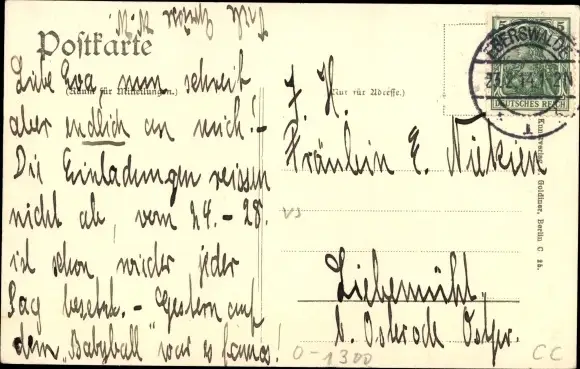 Postkarte
(Raum für Mitteilungen.)
(Nur für Adresse.)
Liebe Eva nun schreib
aber endlich an mich! -
Die Einladungen reissen
nicht ab, vom 24. - 28.
ist schon wieder jeder
Tag besetzt. - Gestern auf
dem "Babyball" war es famos!
F. H.
Fräulein E.
Liebemühl,
b. Osterode Ostpr.
EBERSWALDE
14.1-2N
5
DEUTSCHES REICH
Goldiner, Berlin C 25.
VS
0-1300
CC